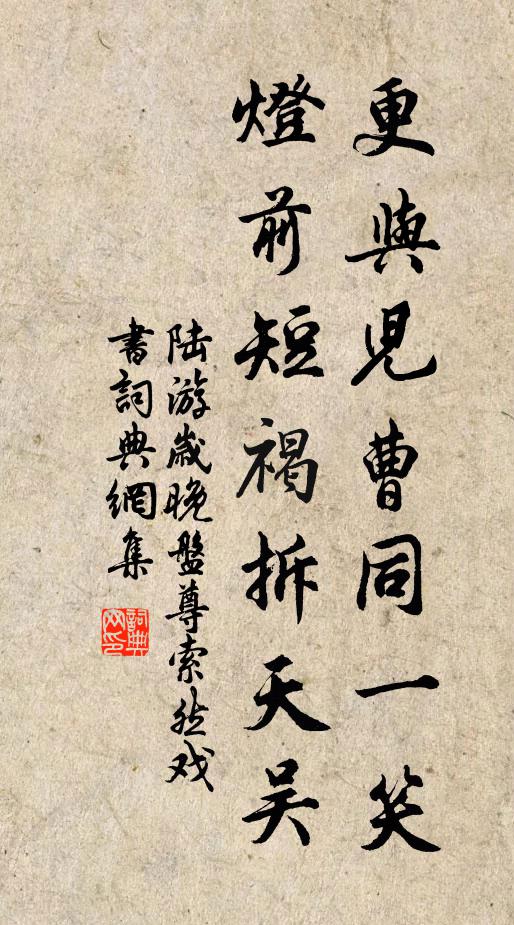 更與兒曹同一笑
燈前短褐拆天吴
陆游歲晚盤尊索然戏
書詞典網集
詞典
网印